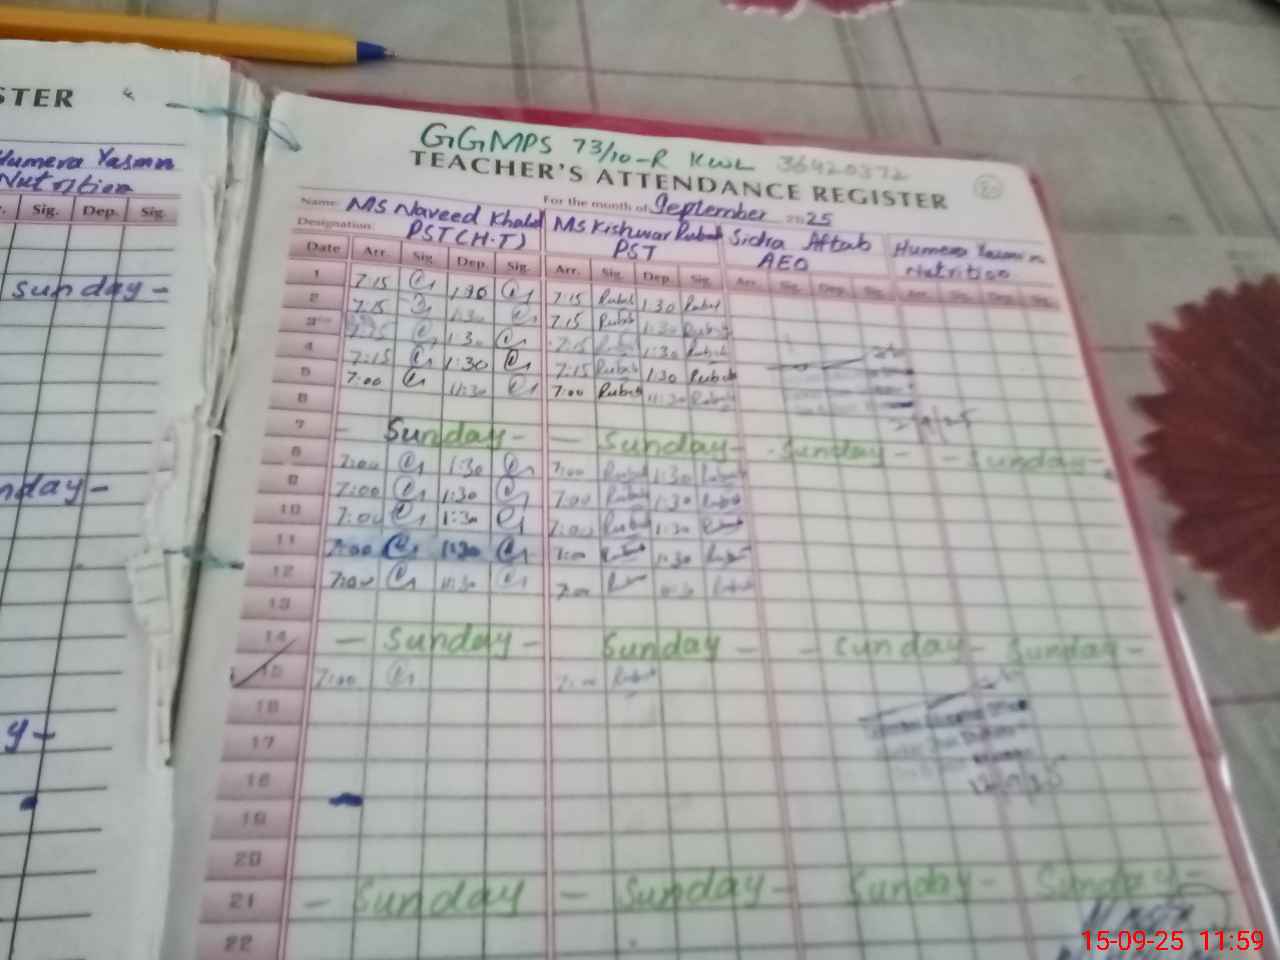 STER
Humera Yasmin
Nutrition
Sig. Dep. Sig.
Sunday -
nday -
y -
GGMPS 73/10-R KWL 36420372
TEACHER'S ATTENDANCE REGISTER
Name: MS Naveed Khalid For the month of September 2025
Designation: PST (H.T) MS Kishwar Rubab PST Sidra Aftab AEO Humera Yasmin Nutrition
Date Arr. Sig. Dep. Sig. Arr. Sig. Dep. Sig. Arr. Sig. Dep. Sig. Arr. Sig. Dep. Sig.
1 7:15 1:30 7:15 Rubab 1:30 Rubab
2 7:15 1:30 7:15 Rubab 1:30 Rubab
3 1:30 7:15 Rubab 1:30 Rubab
4 7:15 1:30 7:15 Rubab 1:30 Rubab
5 7:00 11:30 7:00 Rubab 11:30 Rubab
6
7 - Sunday - - Sunday - - Sunday - - Sunday -
8 7:00 1:30 7:00 Rubab 1:30 Rubab
9 7:00 1:30 7:00 Rubab 1:30 Rubab
10 7:00 1:30 7:00 Rubab 1:30 Rubab
11 7:00 1:30 7:00 Rubab 1:30 Rubab
12 7:00 11:30 7:00 11:30 Rubab
13
14 - Sunday - Sunday - - Sunday - Sunday -
15 7:00 7:00 Rubab
16
17
18
19
20
21 - Sunday - Sunday - Sunday - Sunday -
22
15-09-25 11:59